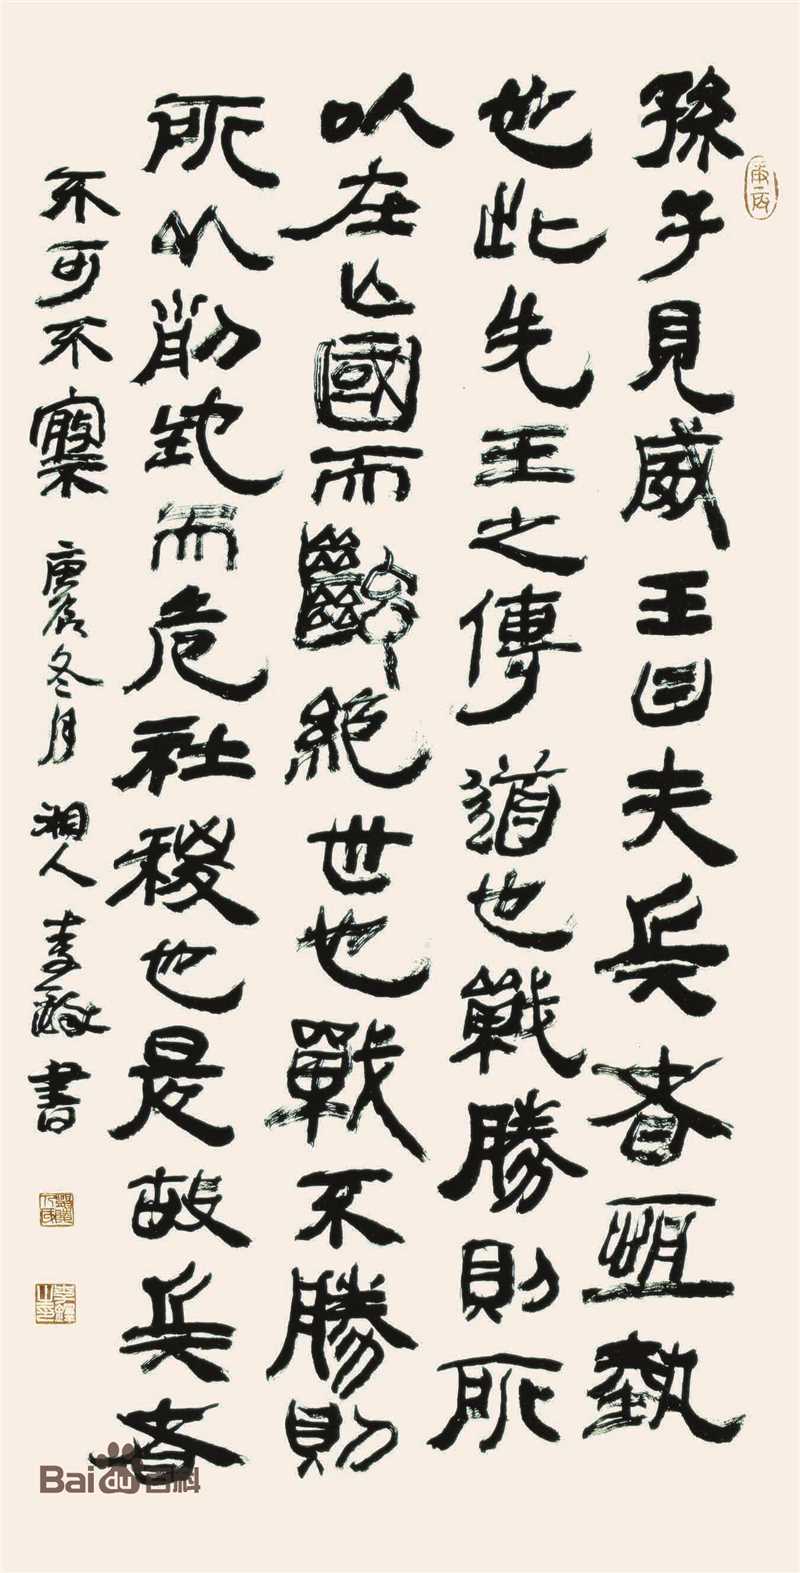 孫子見威王曰夫兵者恆埶
也此先王之傳道也戰勝則所
以在亡國而繼絕世也戰不勝則
所以削地而危社稷也是故兵者
不可不察 庚辰冬月 湘人李鐸書
Bai du 百科